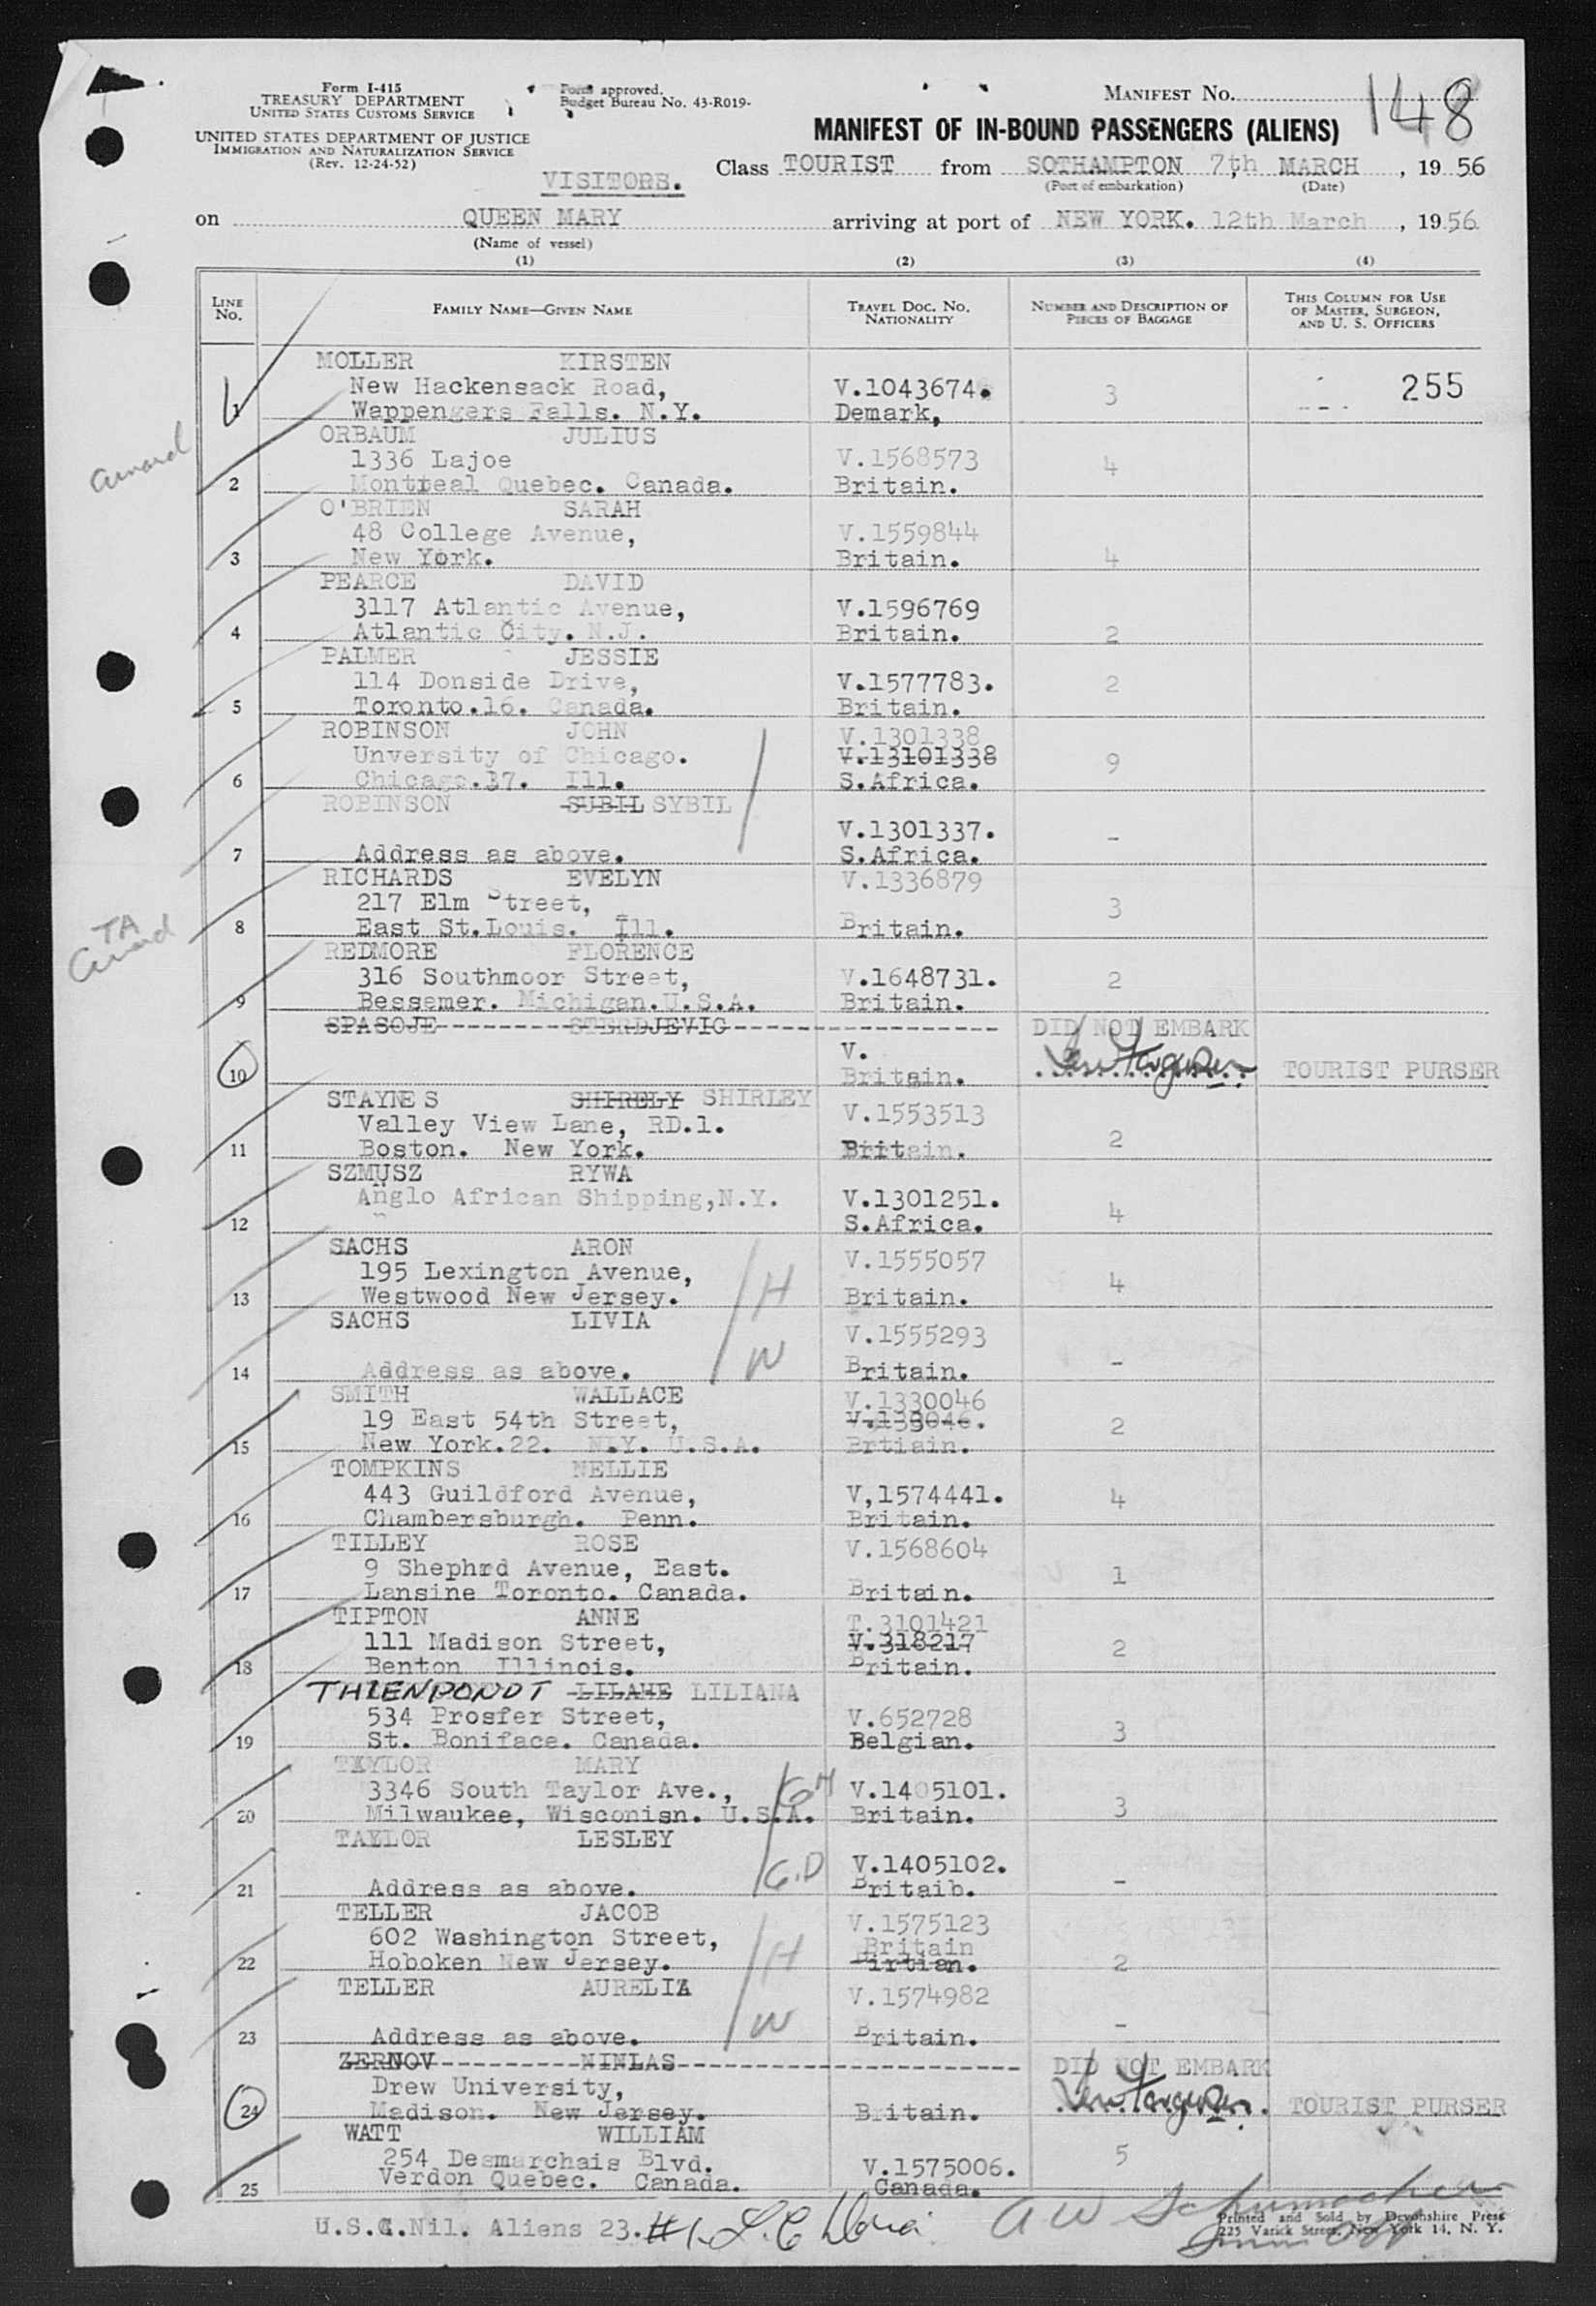 Form I-415
TREASURY DEPARTMENT
UNITED STATES CUSTOMS SERVICE
UNITED STATES DEPARTMENT OF JUSTICE
IMMIGRATION AND NATURALIZATION SERVICE
(Rev. 12-24-52)
Form approved.
Budget Bureau No. 43-R019-
MANIFEST NO. 148
MANIFEST OF IN-BOUND PASSENGERS (ALIENS)
VISITORS.
Class TOURIST from SOTHAMPTON 7th MARCH, 19 56
(Port of embarkation) (Date)
on QUEEN MARY arriving at port of NEW YORK. 12th March, 19 56
(Name of vessel)
(1) (2) (3) (4)
LINE NO. FAMILY NAME—GIVEN NAME TRAVEL DOC. NO. NATIONALITY NUMBER AND DESCRIPTION OF PIECES OF BAGGAGE THIS COLUMN FOR USE OF MASTER, SURGEON, AND U. S. OFFICERS
MOLLER KIRSTEN
New Hackensack Road, V.1043674. 3 255
1 Wappengers Falls. N.Y. Demark,
ORBAUM JULIUS
1336 Lajoe V.1568573 4
2 Montreal Quebec. Canada. Britain.
O'BRIEN SARAH
48 College Avenue, V.1559844
3 New York. Britain. 4
PEARCE DAVID
3117 Atlantic Avenue, V.1596769
4 Atlantic City. N.J. Britain. 2
PALMER JESSIE
114 Donside Drive, V.1577783. 2
5 Toronto.16. Canada. Britain.
ROBINSON JOHN V.1301338
Unversity of Chicago. V.13101338 9
6 Chicago.37. Ill. S.Africa.
ROBINSON SUBIL SYBIL
V.1301337. -
7 Address as above. S.Africa.
RICHARDS EVELYN V.1336879
217 Elm Street, 3
8 East St.Louis. Ill. Britain.
REDMORE FLORENCE
316 Southmoor Street, V.1648731. 2
9 Bessemer. Michigan.U.S.A. Britain.
SPASOJE STERDJEVIC DID NOT EMBARK
V.
10 Britain. TOURIST PURSER
STAYNES SHIRELY SHIRLEY V.1553513
Valley View Lane, RD.1. 2
11 Boston. New York. Britain.
SZMUSZ RYWA
Anglo African Shipping,N.Y. V.1301251. 4
12 S.Africa.
SACHS ARON V.1555057
195 Lexington Avenue, H 4
13 Westwood New Jersey. Britain.
SACHS LIVIA V.1555293
W -
14 Address as above. Britain.
SMITH WALLACE V.1330046
19 East 54th Street, V.133046. 2
15 New York.22. N.Y. U.S.A. Brtiain.
TOMPKINS NELLIE
443 Guildford Avenue, V,1574441. 4
16 Chambersburgh. Penn. Britain.
TILLEY ROSE V.1568604
9 Shephrd Avenue, East. 1
17 Lansine Toronto. Canada. Britain.
TIPTON ANNE T.3101421
111 Madison Street, V.318217 2
18 Benton Illinois. Britain.
THIENPONDT LILAHE LILIANA
534 Prosfer Street, V.652728 3
19 St. Boniface. Canada. Belgian.
TAYLOR MARY
3346 South Taylor Ave., V.1405101. 3
20 Milwaukee, Wisconisn. U.S.A. Britain.
TAYLOR LESLEY
G.D V.1405102. -
21 Address as above. Britaib.
TELLER JACOB V.1575123
602 Washington Street, H Britain
22 Hoboken New Jersey. Birtian. 2
TELLER AURELIA V.1574982
W -
23 Address as above. Britain.
ZERNOV NINLAS DID NOT EMBARK
Drew University,
24 Madison. New Jersey. Britain. TOURIST PURSER
WATT WILLIAM 5
254 Desmarchais Blvd. V.1575006.
25 Verdon Quebec. Canada. Canada.
U.S.C.Nil. Aliens 23. A W Schumacher
Printed and Sold by Devonshire Press
225 Varick Street, New York 14, N. Y.